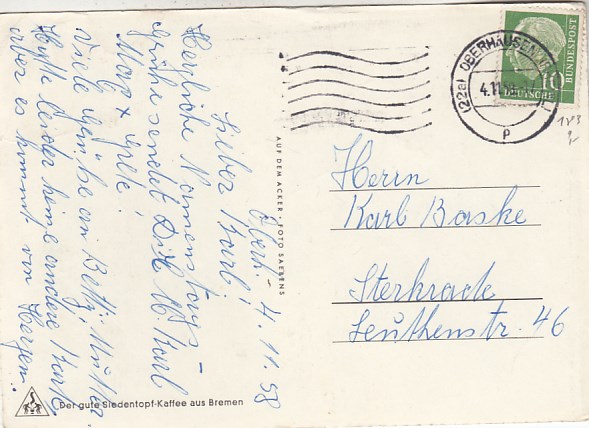 Oberh. - 4.11.58
Lieber Karl!
Herzliche Namenstags-
grüße sendet Dir lb Karl
Max + Grete!
Viele Grüße an Betty, Mutter
Hatte leider keine andere Karte,
aber es kommt von Herzen.
AUF DEM ACKER · FOTO SAEBENS
Der gute Siedentopf-Kaffee aus Bremen
(22a) OBERHAUSEN
4.11.58
P
10
DEUTSCHE
BUNDESPOST
183
Herrn
Karl Baske
Sterkrade
Leuthenstr. 46